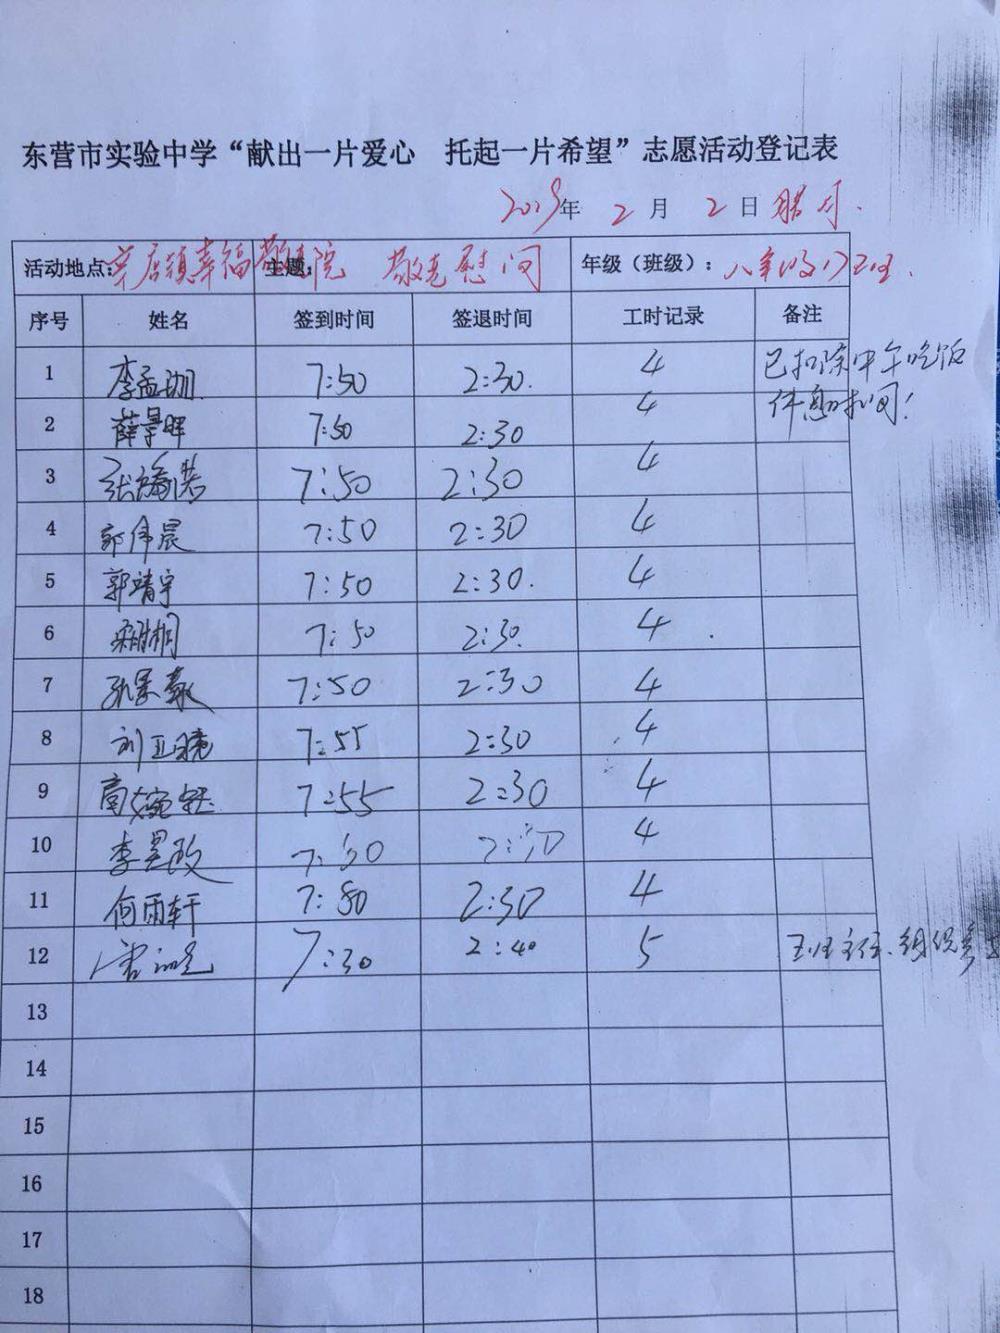 东营市实验中学“献出一片爱心 托起一片希望”志愿活动登记表
2019年 2 月 2 日
活动地点: 店镇幸福敬老院 主题: 敬老慰问 年级（班级）: 八年级
序号 姓名 签到时间 签退时间 工时记录 备注
1 李孟珈 7:50 2:30. 4 已扣除中午吃饭
2 薛景晖 7:50 2:30 4 休息时间!
3 张 浩 7:50 2:30 4
4 郭伟晨 7:50 2:30 4
5 郭靖宇 7:50 2:30. 4
6 7:50 2:30. 4
7 7:50 2:30 4
8 刘 7:55 2:30 4
9 高婉钰 7:55 2:30 4
10 李昱政 7:50 2:30 4
11 何雨轩 7:50 2:30 4
12 7:30 2:40 5 班主任、组织参
13
14
15
16
17
18